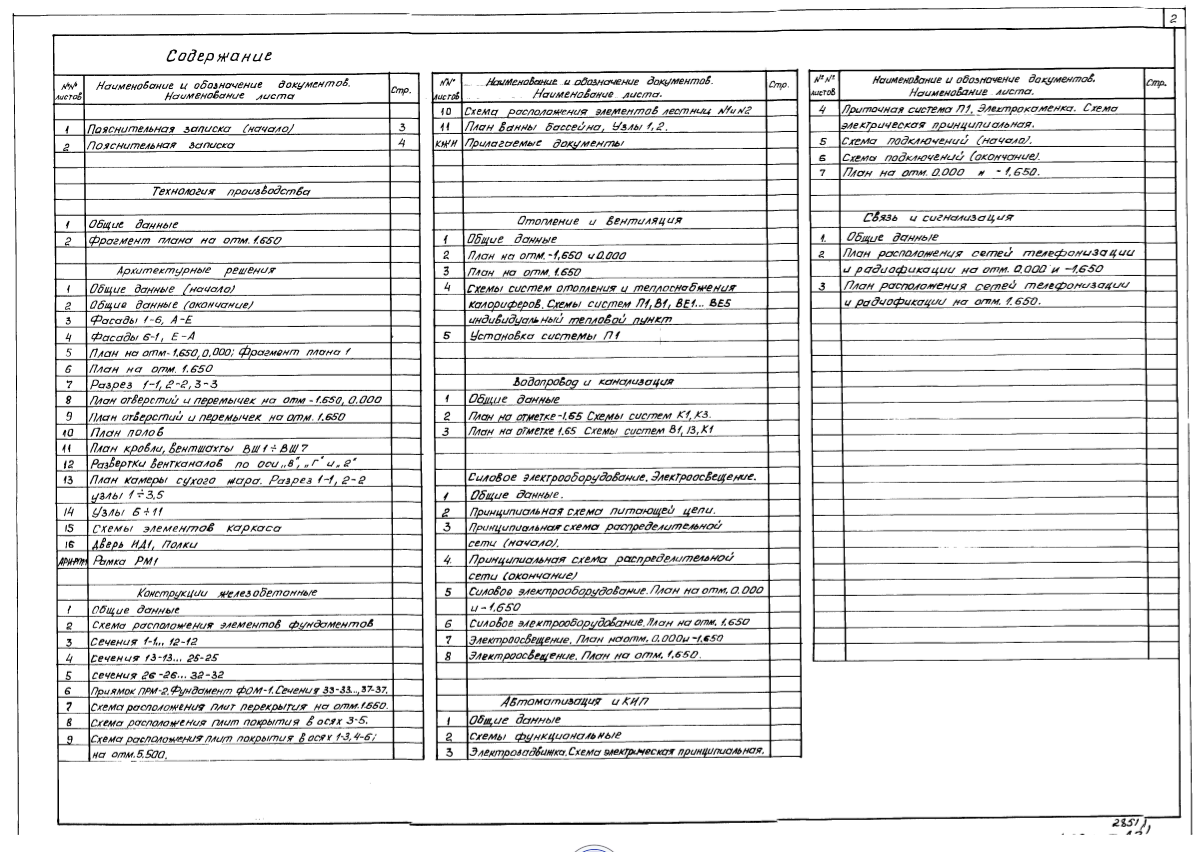 2
Содержание
№№ листов
Наименование и обозначение документов. Наименование листа
Стр.
1 Пояснительная записка (начало) 3
2 Пояснительная записка 4
Технология производства
1 Общие данные
2 Фрагмент плана на отм. 1.650
Архитектурные решения
1 Общие данные (начало)
2 Общие данные (окончание)
3 Фасады 1-6, А-Е
4 Фасады 6-1, Е-А
5 План на отм-1.650, 0,000; Фрагмент плана 1
6 План на отм. 1.650
7 Разрез 1-1, 2-2, 3-3
8 План отверстий и перемычек на отм -1.650, 0.000
9 План отверстий и перемычек на отм. 1.650
10 План полов
11 План кровли, Вентшахты ВШ1÷ВШ7
12 Развертки вентканалов по оси „в", „г" и „2"
13 План камеры сухого жара. Разрез 1-1, 2-2
узлы 1÷3,5
14 Узлы 6÷11
15 Схемы элементов каркаса
16 Дверь ИД1, Полки
Рамка РМ1
Конструкции железобетонные
1 Общие данные
2 Схема расположения элементов фундаментов
3 Сечения 1-1... 12-12
4 Сечения 13-13... 25-25
5 сечения 26-26... 32-32
6 Приямок ПРМ-2. Фундамент ФОМ-1. Сечения 33-33..., 37-37.
7 Схема расположения плит перекрытия на отм. 1.650.
8 Схема расположения плит покрытия в осях 3-5.
9 Схема расположения плит покрытия в осях 1-3, 4-6;
на отм. 5.500.
№№ листов
Наименование и обозначение документов. Наименование листа.
Стр.
10 Схема расположения элементов лестниц №1 и №2
11 План ванны бассейна, Узлы 1, 2.
КЖИ Прилагаемые документы
Отопление и вентиляция
1 Общие данные
2 План на отм. -1,650 и 0.000
3 План на отм. 1.650
4 Схемы систем отопления и теплоснабжения
калориферов. Схемы систем П1, В1, ВЕ1... ВЕ5
индивидуальный тепловой пункт
5 Установка системы П1
Водопровод и канализация
1 Общие данные
2 План на отметке -1,65 Схемы систем К1, К3.
3 План на отметке 1.65 Схемы систем В1, Т3, К1
Силовое электрооборудование. Электроосвещение.
1 Общие данные.
2 Принципиальная схема питающей цепи.
3 Принципиальная схема распределительной
сети (начало).
4. Принципиальная схема распределительной
сети (окончание)
5 Силовое электрооборудование. План на отм. 0.000
и -1,650
6 Силовое электрооборудование. План на отм. 1,650
7 Электроосвещение. План на отм. 0.000 и -1,650
8 Электроосвещение. План на отм. 1.650.
Автоматизация и КИП
1 Общие данные
2 Схемы функциональные
3 Электрозадвижка. Схема электрическая принципиальная.
№№ листов
Наименование и обозначение документов. Наименование листа.
Стр.
4 Приточная система П1. Электрокаменка. Схема
электрическая принципиальная.
5 Схема подключений (начало).
6 Схема подключений (окончание).
7 План на отм. 0.000 и -1,650.
Связь и сигнализация
1. Общие данные
2 План расположения сетей телефонизации
и радиофикации на отм. 0,000 и -1,650
3 План расположения сетей телефонизации
и радиофикации на отм. 1.650.
2851